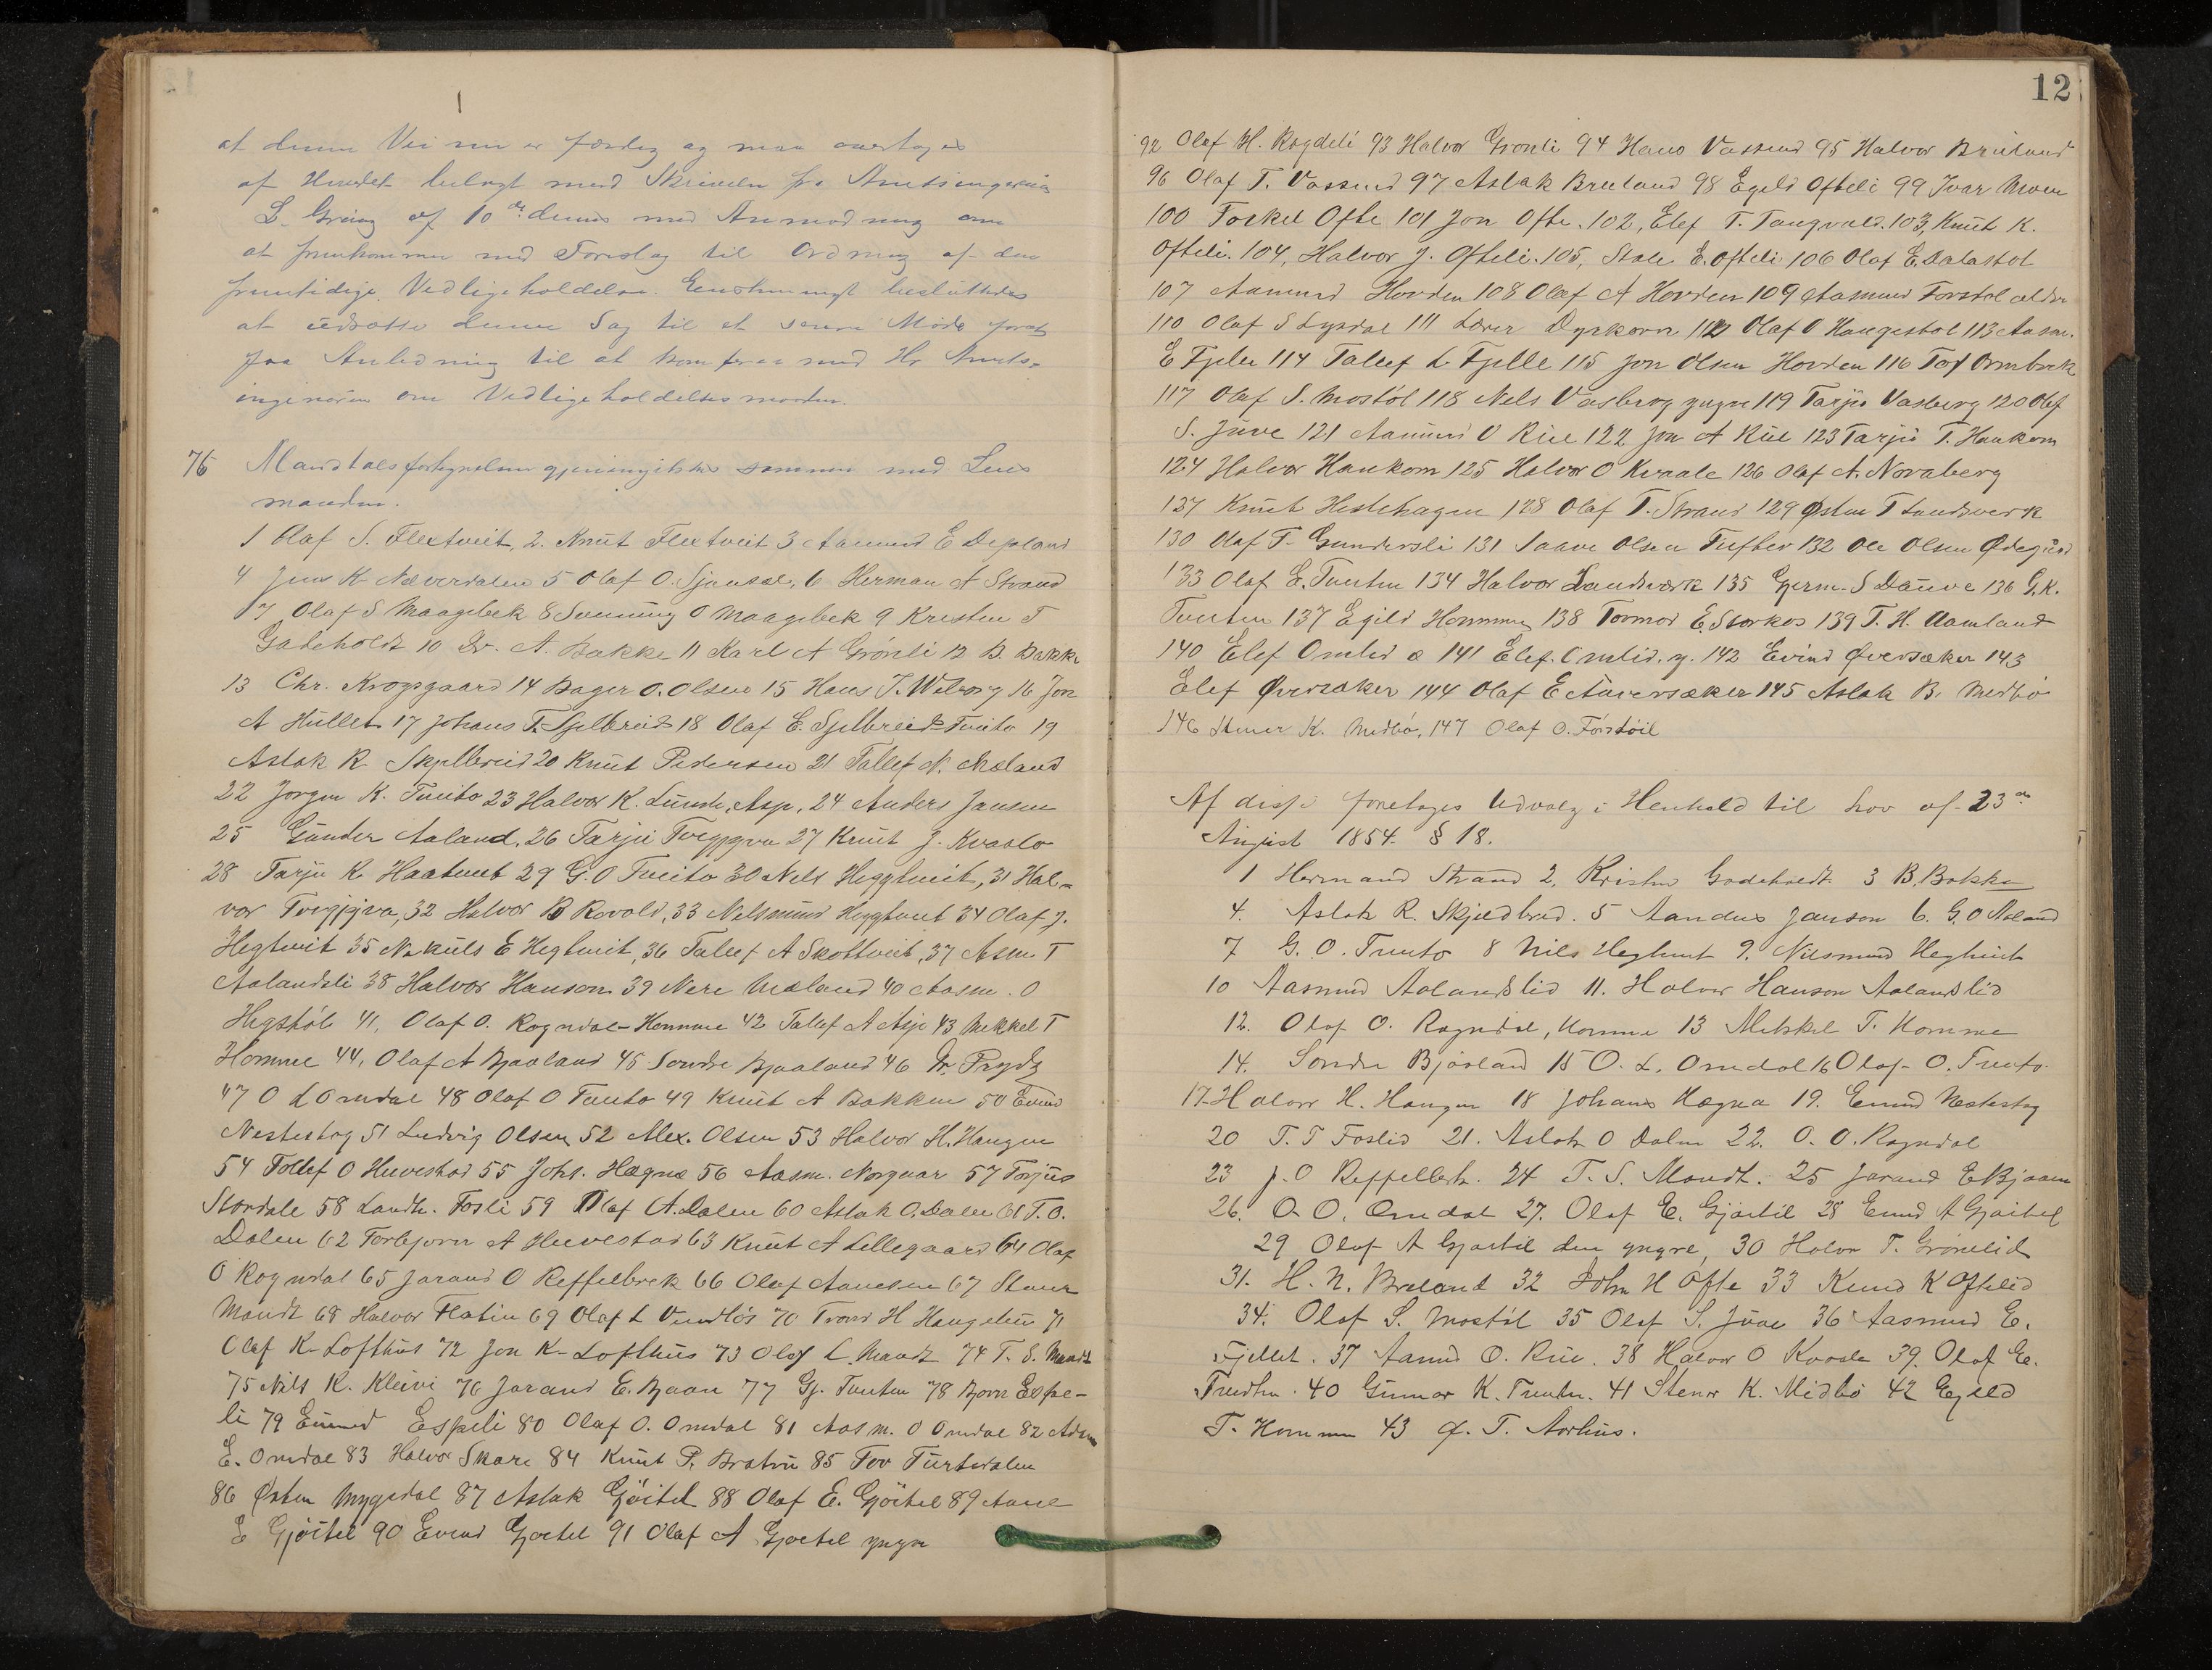 at denne Vei nu er færdig og maa overtages
af Herredet belagt med Skrivelse fra Amtsingeniør
L. Grieg af 10de dennes med Anmodning om
at fremkomme med Forslag til Ordning af den
fremtidige Vedligeholdelse. Eenstemmigt besluttedes
at udsætte denne Sag til et senere Møde for at
faa Anledning til at konferere med Hr Amts-
ingeniøren om Vedligeholdelsesmaaden.
76 Mandtalsfortegnelsen gjennemgikkes sammen med Lens
manden.
1 Olaf S. Flextveit, 2. Knut Flextveit 3 Aamund E Dæpland
4 Jens K Næverdalen 5 Olaf O. 6 Herman A Strand
7 Olaf S Maagebæk 8 Sønning O Maagebek 9 Kresten T
Gadeholdt 10 Dr. A. Bakke 11 Karl A Grønli 12 B. Bakke
13 Chr. Krogsgaard 14 Bager O. Olsen 15 Hans J. 16 Jon
A Hullet 17 Johans T. Sjelbreid 18 Olaf E. Sjelbreid Tveito 19
Aslak R Skjelbreid 20 Knut Pedersen 21 Tallef N. Mæland
22 Jørgen K. Tveito 23 Halvor K. Lunde, Asp, 24 Anders Jansen
25 Gunder Aaland, 26 Tarjei Tveggjva 27 Knut J. Kvaslo
28 Tarjei K. Haatveit 29 G. O Tveito 30 Nels Heggtveit, 31 Hal-
vor Tveggjva, 32 Halvor B Rovold, 33 Nelsmund Heggtveit 34 Olaf J.
Hegtveit 35 Nikuls E Hegtveit, 36 Tallef A Skottveit, 37 Asm. T
Aalandsli 38 Halvor Hanson 39 Nere Mæland 40 Aasm. O
Hegstøl 41, Olaf O. Rogndal-Homme 42 Talef A Asp 43 Mekkel T
Homme 44, Olaf A Bjaaland 45 Sondre Bjaaland 46 Dr. Prydz
47 O L Omdal 48 Olaf O Tveito 49 Knut A Bakken 50 Eivind
Nestestog 51 Ludvig Olsen 52 Alex. Olsen 53 Halvor H. Haugen
54 Tollef O Huvestad 55 Johs. Hægna 56 Aasm. Norgaar 57 Torjus
Stordale 58 Landh. Fosli 59 Olaf A. Dalen 60 Aslak O. Dalen 61 T. O.
Dalen 62 Torbjorn A Huvestad 63 Knut A Lillegaard 64 Olaf
O Rogndal 65 Jarand O Reffelbrek 66 Olaf Aanesen 67 Steinar
Mandt 68 Halvor Flatin 69 Olaf L Vindløs 70 Trond H Haugelien 71
Olaf K-Lofthus 72 Jon K-Lofthus 73 Olaf L. Mandt 74 T. S. Mandt
75 Nils K. Kleivi 76 Jarand E. Bjaan 77 Gj. Tveiten 78 Bjorn Espe-
li 79 Eivind Espeli 80 Olaf O. Omdal 81 Aasm. O Omdal 82
E. Omdal 83 Halvor Skare 84 Knut P. Bratru 85 Tov
86 Østen Mygedal 87 Aslak Gjøitil 88 Olaf E. Gjøitel 89 Aane
E Gjøitel 90 Evend Gjøitel 91 Olaf A Gjøitel yngre
12
92 Olaf H. Rogdeli 93 Halvor Grønli 94 Hans Vassend 95 Halvor Breiland
96 Olaf T. Vassend 97 Aslak Breiland 98 Egeld Ofteli 99 Ivar Moen
100 Torkel Ofte 101 Jon Ofte. 102, Elef T. Tangvald. 103, Knut K.
Ofteli. 104, Halvor J. Ofteli. 105, Stale E. Ofteli 106 Olaf E. Dalastøl
107 Aamund Hovden 108 Olaf A Hovden 109 Aamund Forstøl ældre
110 Olaf S Lysdal 111 Lærer Dyrkorn 112 Olaf O Haugestøl 113 Aasm.
E Fjelle 114 Tallef L Fjelle 115 Jon Olsen Hovden 116 Tof Ormbrek
117 Olaf S. Mostøl 118 Nels Vasberg yngre 119 Tarjei Vasberg 120 Olaf
S. Juve 121 Aamund O Rue 122 Jon A Rue 123 Tarjei T. Haukom
124 Halvor Haukom 125 Halvor O Kvaale 126 Olaf A. Noraberg
127 Knut Hestehagen 128 Olaf T. Strand 129 Østen T Landsverk
130 Olaf T. Gundersli 131 Saave Olsen Tufter 132 Ole Olsen Ødegård
133 Olaf E. Tveiten 134 Halvor Landsverk 135 Gjerm. S Dauve 136 G. K.
Tveiten 137 Egild Homme 138 Tormod E. Storkos 139 T. H. Aamland
140 Elef Omlid æ 141 Elef. Omlid. y. 142 Evind Øversaker 143
Elef Øversaker 144 Olaf E Auversæker 145 Aslak B. Midbø
146 Steinar K. Midbø, 147 Olaf O. Førstøil
Af disse foretages Udvalg i Henhold til Lov af 23de
August 1854. § 18.
1 Hermand Strand 2, Kristen Gadeholdt 3 B. Bakka
4. Aslak R. Skjeldbred. 5 Aandres Janson 6. G. O Aaland
7 G. O. Tveito 8 Nils Hegtveit 9. Nilsmund Hegtveit
10 Aasmund Aalandslid 11. Halvor Hanson Aalandslid
12. Olaf O. Rogndal, Homme 13 Mekkel T. Homme
14. Sondre Bjåland 15 O. L. Omdal 16 Olaf O. Tveito.
17. Halvor H. Haugen 18 Johans Hægna 19. Eivind Nestestog
20 T. T Foslid 21. Aslak O Dalen 22. O. O. Rogndal
23 J. O Reffelbrek. 24 T. S. Mandt. 25 Jarand E Bjaaen
26. O. O. Omdal 27. Olaf E. Gjøitil 28 Eivind A Gjøitil
29 Olaf A Gjøitil den yngre, 30 Halvor T. Grønlid
31. H. N. Breland 32 John H Ofte 33 Knud K Oftelid
34. Olaf S. Mostøl 35 Olaf S. Juve 36 Aasmund E.
Fjellet. 37 Aamund O. Rue. 38 Halvor O Kvaale 39. Olaf E.
Tveiten. 40 Gunnar K. Tveiten. 41 Stenar K. Midbø 42 Egild
T. Homme 43 Ø. T. Aarhus.